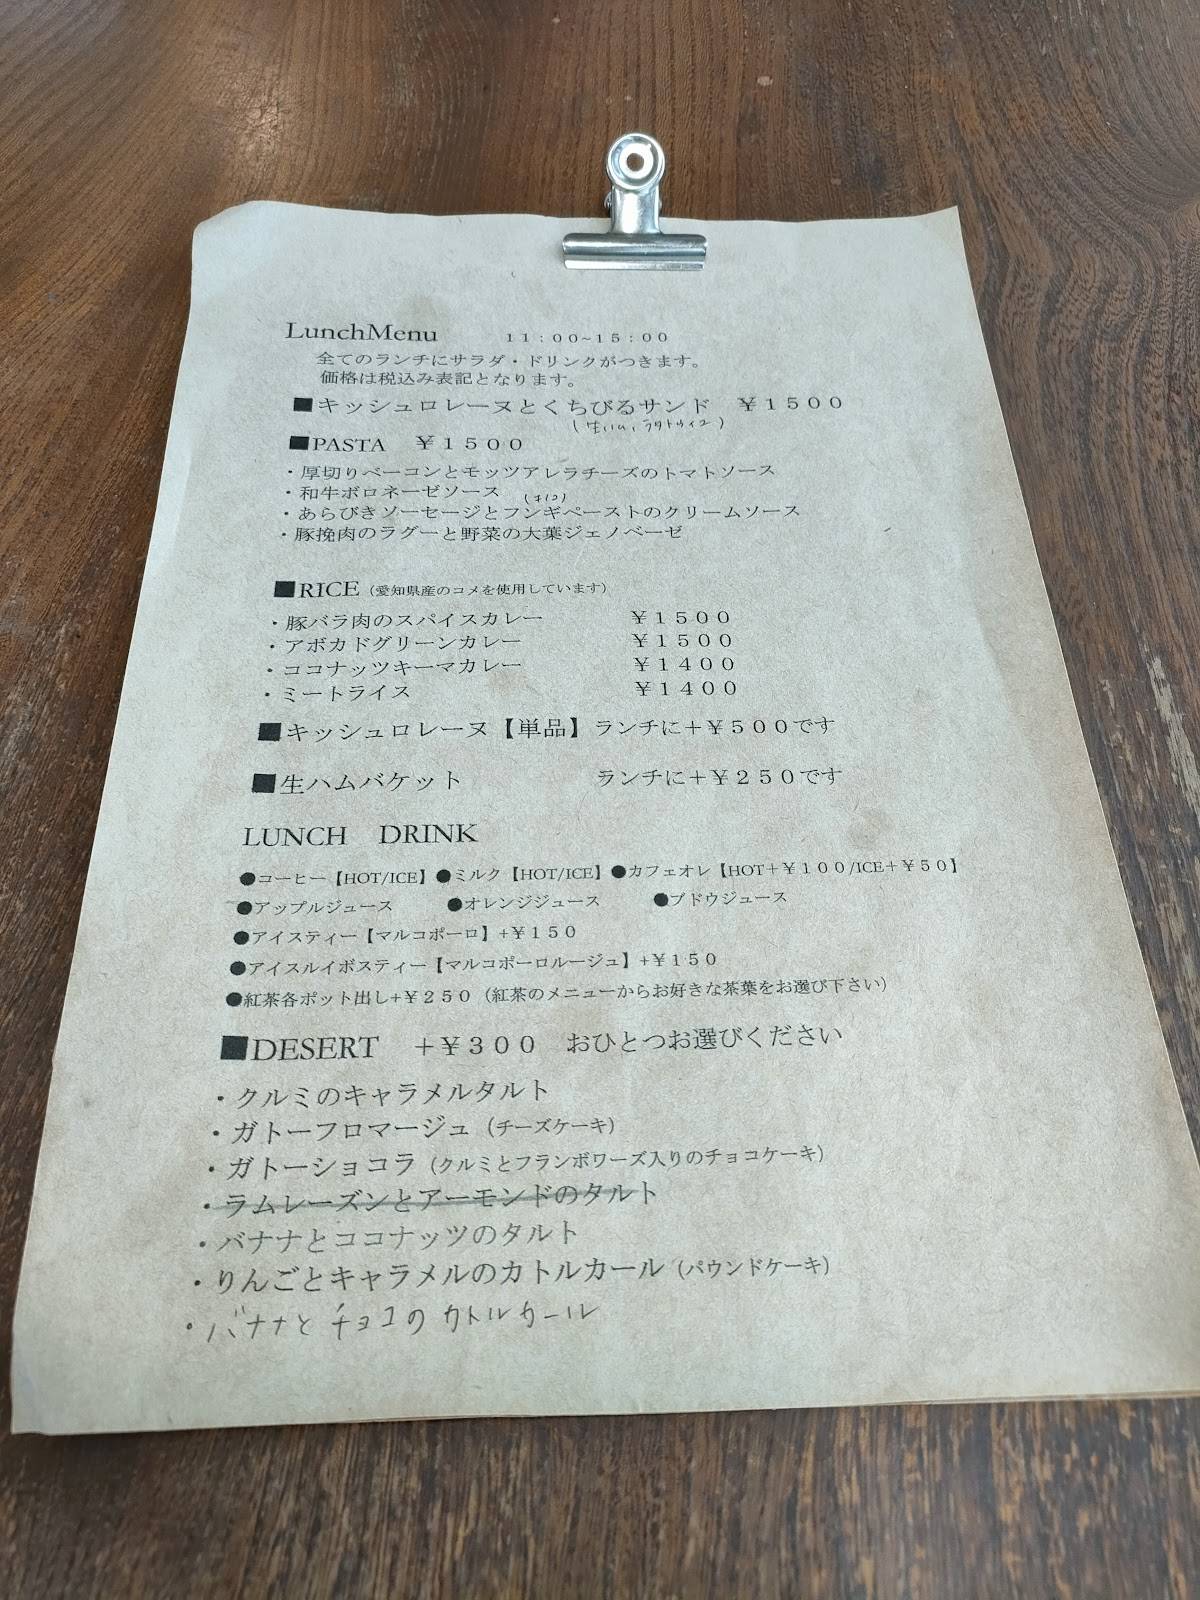 LunchMenu 11:00~15:00
全てのランチにサラダ・ドリンクがつきます。
価格は税込み表記となります。
■キッシュロレーヌとくちびるサンド ￥1500
(生ハム、ラタトゥイユ)
■PASTA ￥1500
・厚切りベーコンとモッツアレラチーズのトマトソース
・和牛ボロネーゼソース
(キノコ)
・あらびきソーセージとフンギペーストのクリームソース
・豚挽肉のラグーと野菜の大葉ジェノベーゼ
■RICE（愛知県産のコメを使用しています）
・豚バラ肉のスパイスカレー ￥1500
・アボカドグリーンカレー ￥1500
・ココナッツキーマカレー ￥1400
・ミートライス ￥1400
■キッシュロレーヌ【単品】ランチに＋￥500です
■生ハムバケット ランチに＋￥250です
LUNCH DRINK
●コーヒー【HOT/ICE】●ミルク【HOT/ICE】●カフェオレ【HOT＋￥100/ICE＋￥50】
●アップルジュース ●オレンジジュース ●ブドウジュース
●アイスティー【マルコポーロ】+￥150
●アイスルイボスティー【マルコポーロルージュ】+￥150
●紅茶各ポット出し+￥250（紅茶のメニューからお好きな茶葉をお選び下さい）
■DESERT ＋￥300 おひとつお選びください
・クルミのキャラメルタルト
・ガトーフロマージュ（チーズケーキ）
・ガトーショコラ（クルミとフランボワーズ入りのチョコケーキ）
・ラムレーズンとアーモンドのタルト
・バナナとココナッツのタルト
・りんごとキャラメルのカトルカール（パウンドケーキ）
・バナナとチョコのカトルカール